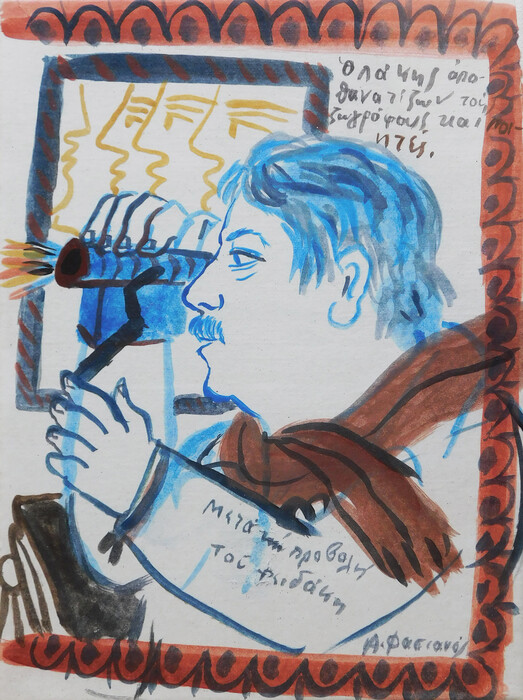 Ὁ Λάκης ἀπο-
θανατίζων τούς
ζωγράφους καί ποι-
ητές.
Μετά τήν προβολή
τοῦ Φειδάκη
Α. Φασιανός